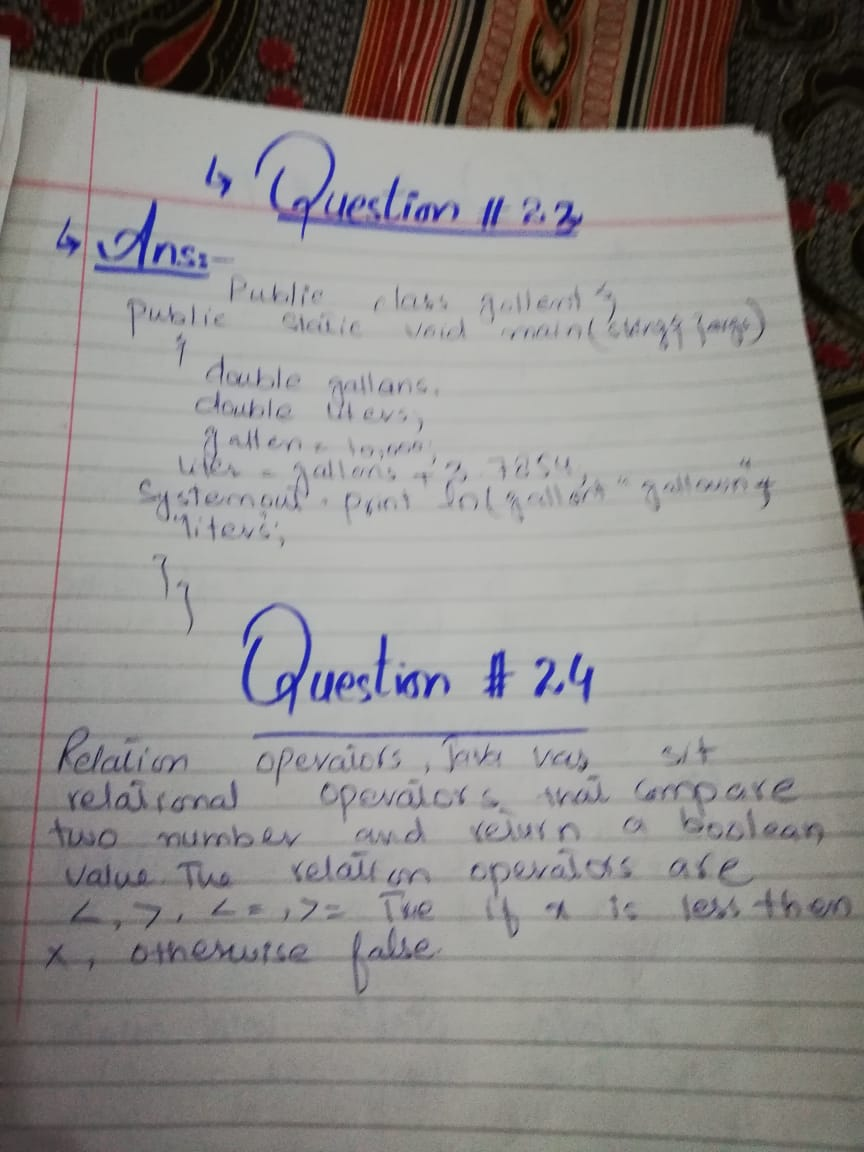 ↳ Question # 2.3
↳ Ans:-
Public class gallent {
Public static void main(string{ }args)
{
double gallans.
double liters;
gallen = 10,000;
liter = gallans + 3.7854;
System out . print ln( gallons "
liters;
}}
Question # 2.4
Relation operators, Java vas sit
relational operators that compare
two number and return a boolean
value. The relation operators are
<, >, <=, >= True if x is less then
x, otherwise false.